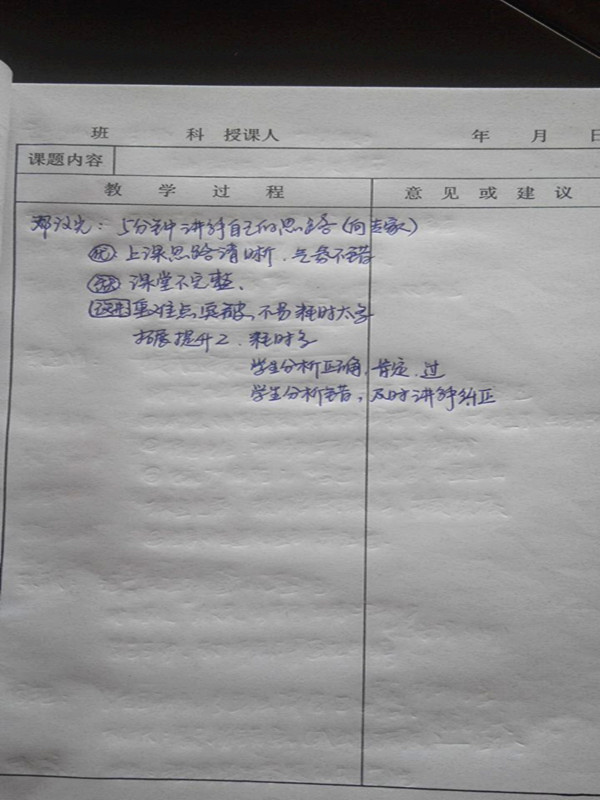 班 科 授课人 年 月 日
课题内容
教学过程 意见或建议
邓汉先：5分钟讲解自己的思路（向专家）
优：上课思路清晰，气氛不错
课堂不完整。
重难点，突破，不易耗时太多
拓展提升2，耗时多
学生分析正确，肯定，过
学生分析错，及时讲解纠正